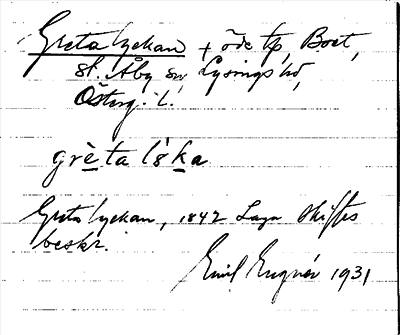 Gretalyckan + öde tp, Boet,
St. Åby sn, Lysings hd,
Österg. l.
grèta lỳka
Gretalyckan, 1842 Laga skiftes
beskr.
Emil Engnér 1931